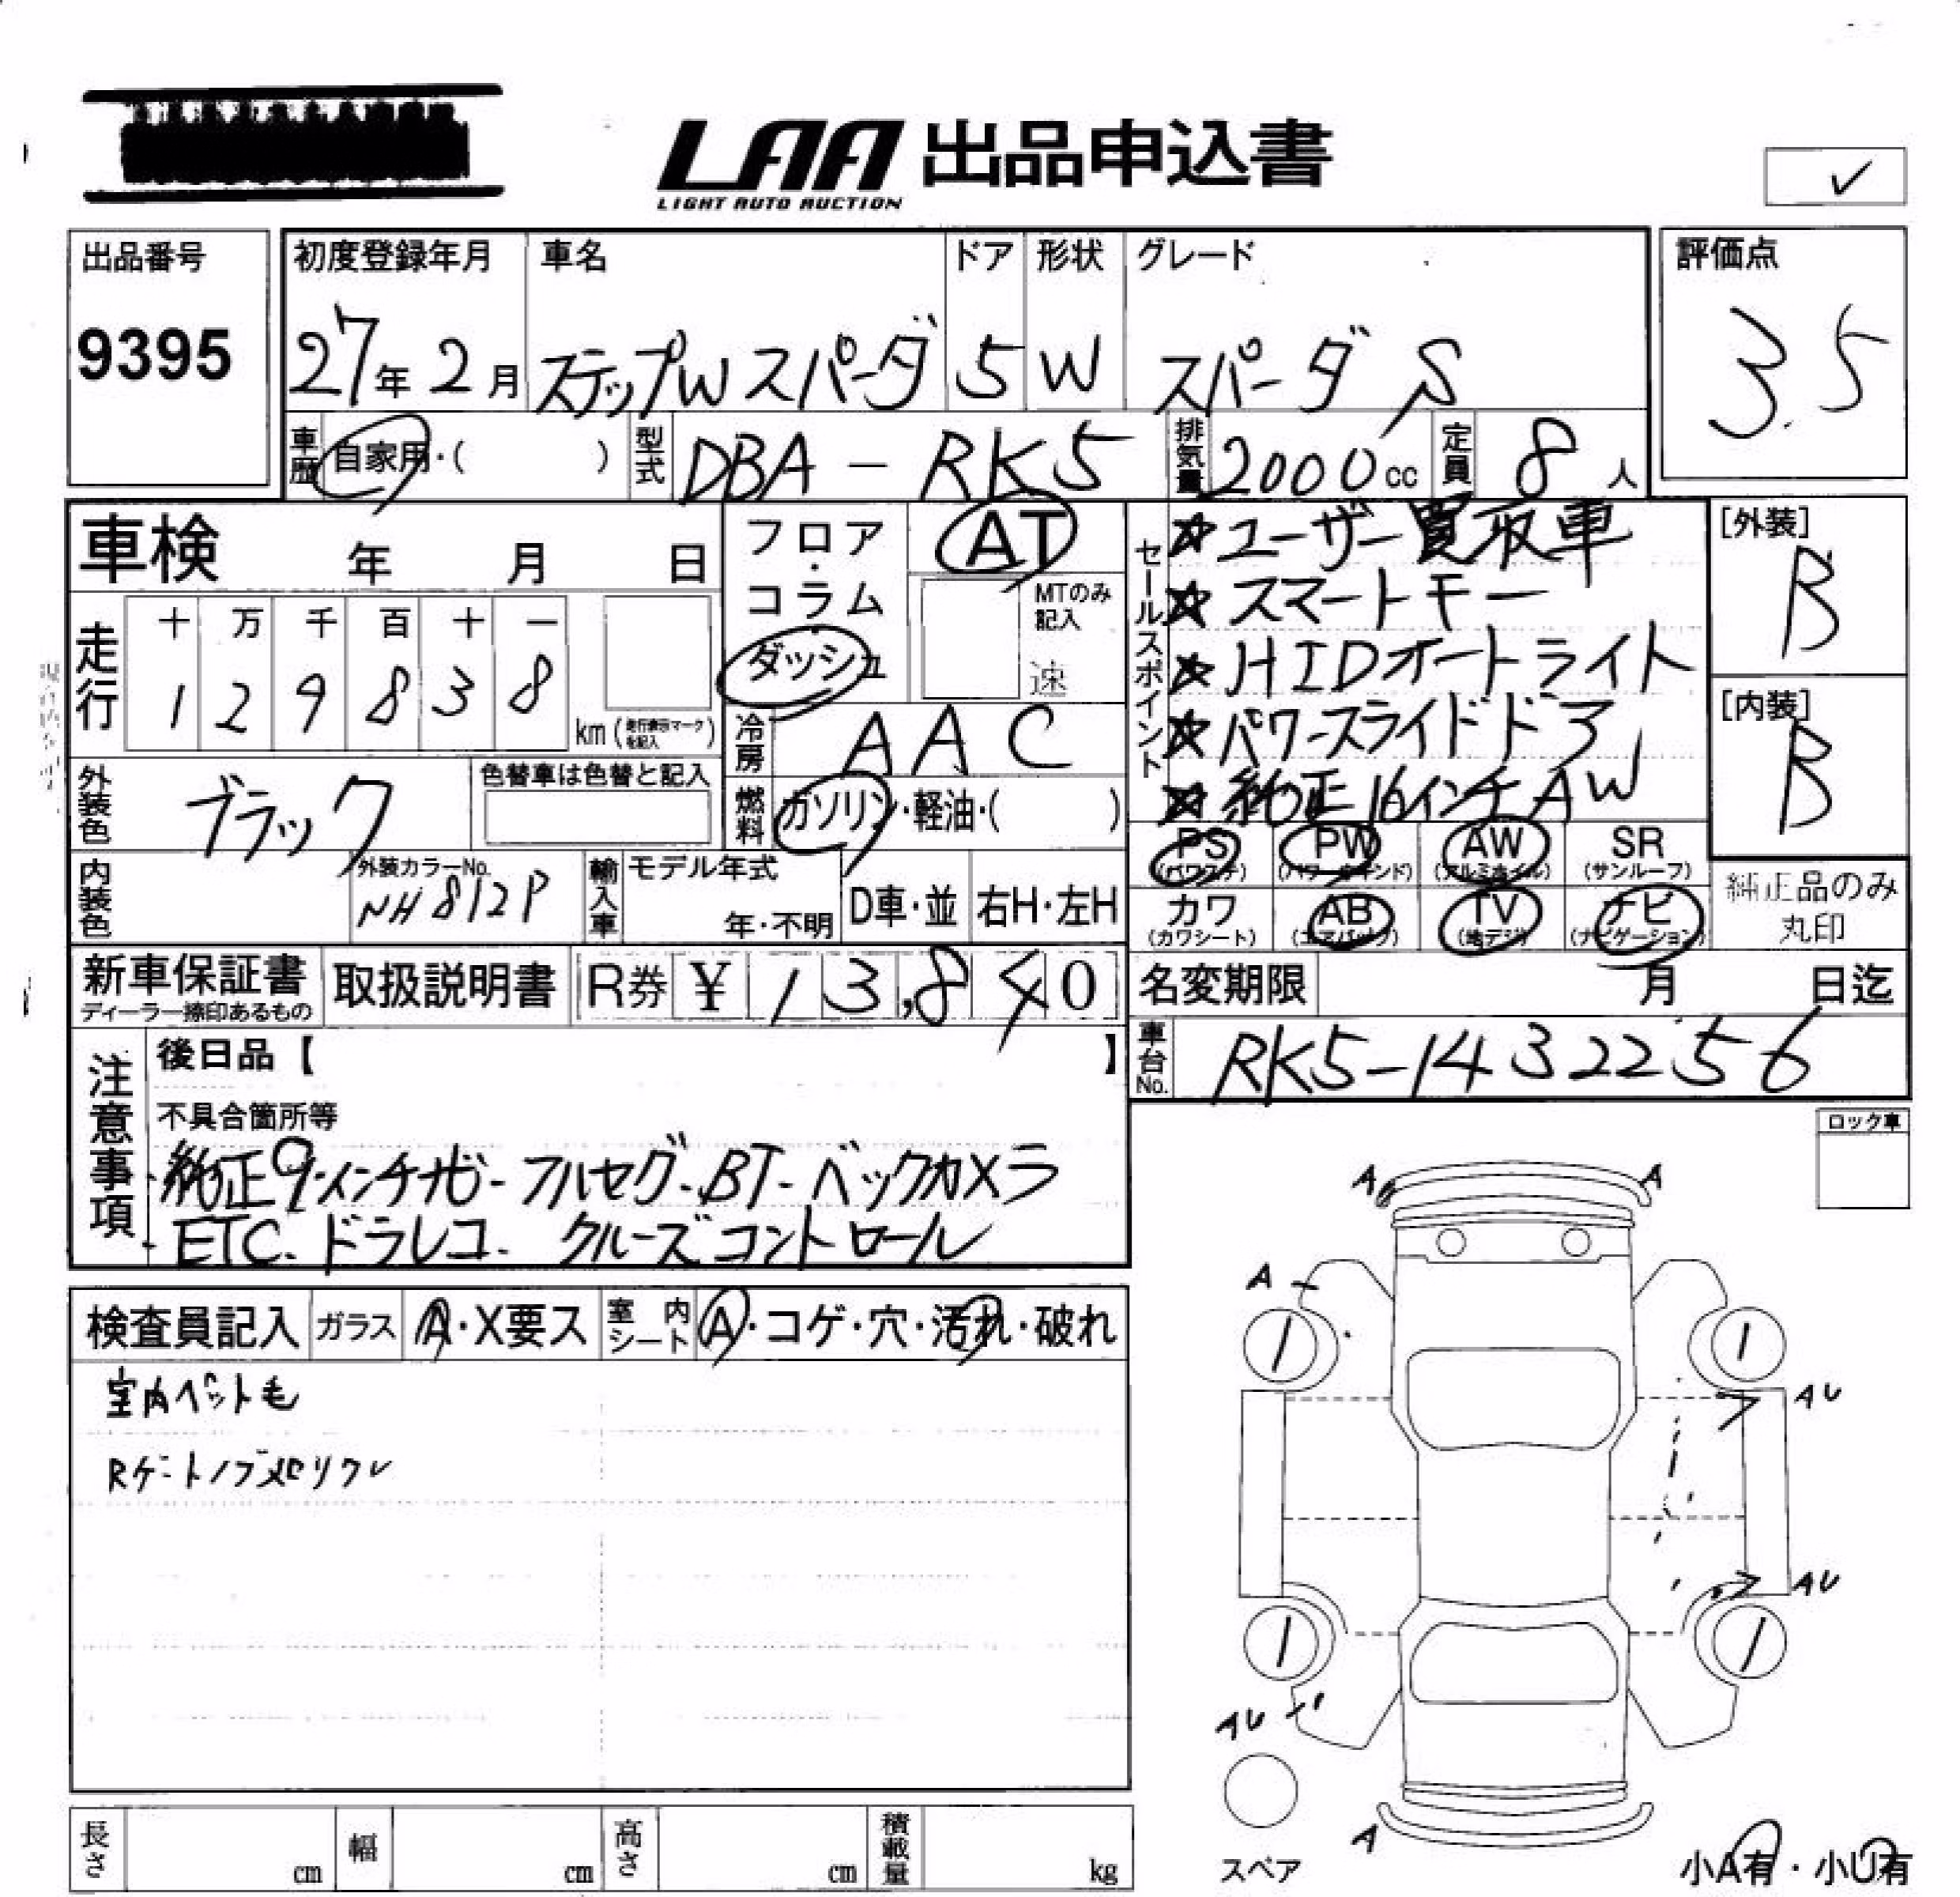 LAA 出品申込書
LIGHT AUTO AUCTION
✓
出品番号
9395
初度登録年月
27年2月
車名
ステップWスパーダ
ドア
5
形状
W
グレード
スパーダ S
評価点
3.5
車歴
自家用・( )
型式
DBA-RK5
排気量
2000cc
定員
8人
車検 年 月 日
フロア・コラム
ダッシュ
AT
MTのみ記入
速
セールスポイント
☆ユーザー買取車
☆スマートキー
☆HIDオートライト
☆パワースライドドア
☆純正16インチAW
[外装]
B
[内装]
B
走行
十 万 千 百 十 一
1 2 9 8 3 8
km (走行表示マークを記入)
冷房
AAC
外装色
ブラック
色替車は色替と記入
燃料
ガソリン・軽油・( )
PS (パワステ)
PW (パワーウインド)
AW (アルミホイル)
SR (サンルーフ)
カワ (カワシート)
AB (エアバック)
TV (地デジ)
ナビ (ナビゲーション)
純正品のみ丸印
内装色
外装カラーNo.
NH812P
輸入車
モデル年式
年・不明
D車・並
右H・左H
新車保証書
ディーラー捺印あるもの
取扱説明書
R券 ¥ 13,840
名変期限 月 日迄
車台No.
RK5-1432256
注意事項
後日品【 】
不具合箇所等
純正9インチナビ-フルセグ-BT-バックカメラ
ETC-ドラレコ-クルーズコントロール
ロック車
検査員記入
ガラス
A・X要ス
室内シート
A・コゲ・穴・汚れ・破れ
室内ペット毛
Rゲートノブメロリクレ
A A
A
1 1
AU
AU
1 1
AU
A
スペア
小A有・小U有
長さ cm
幅 cm
高さ cm
積載量 kg